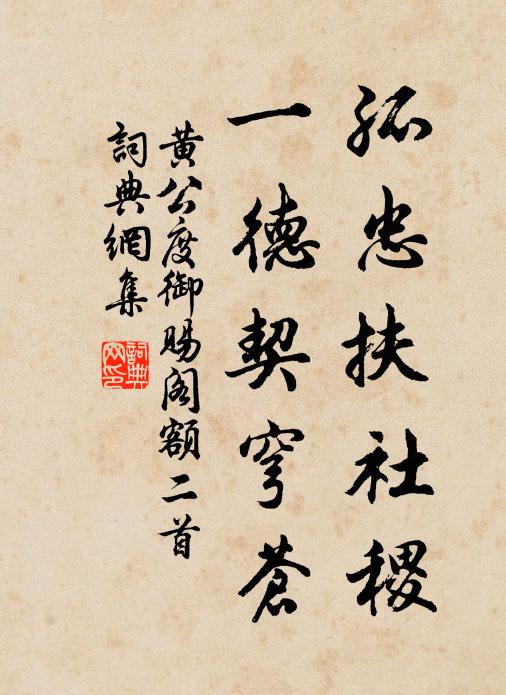 孤忠扶社稷
一德契穹蒼
黄公度御賜閣額二首
詞典網集
詞典網印